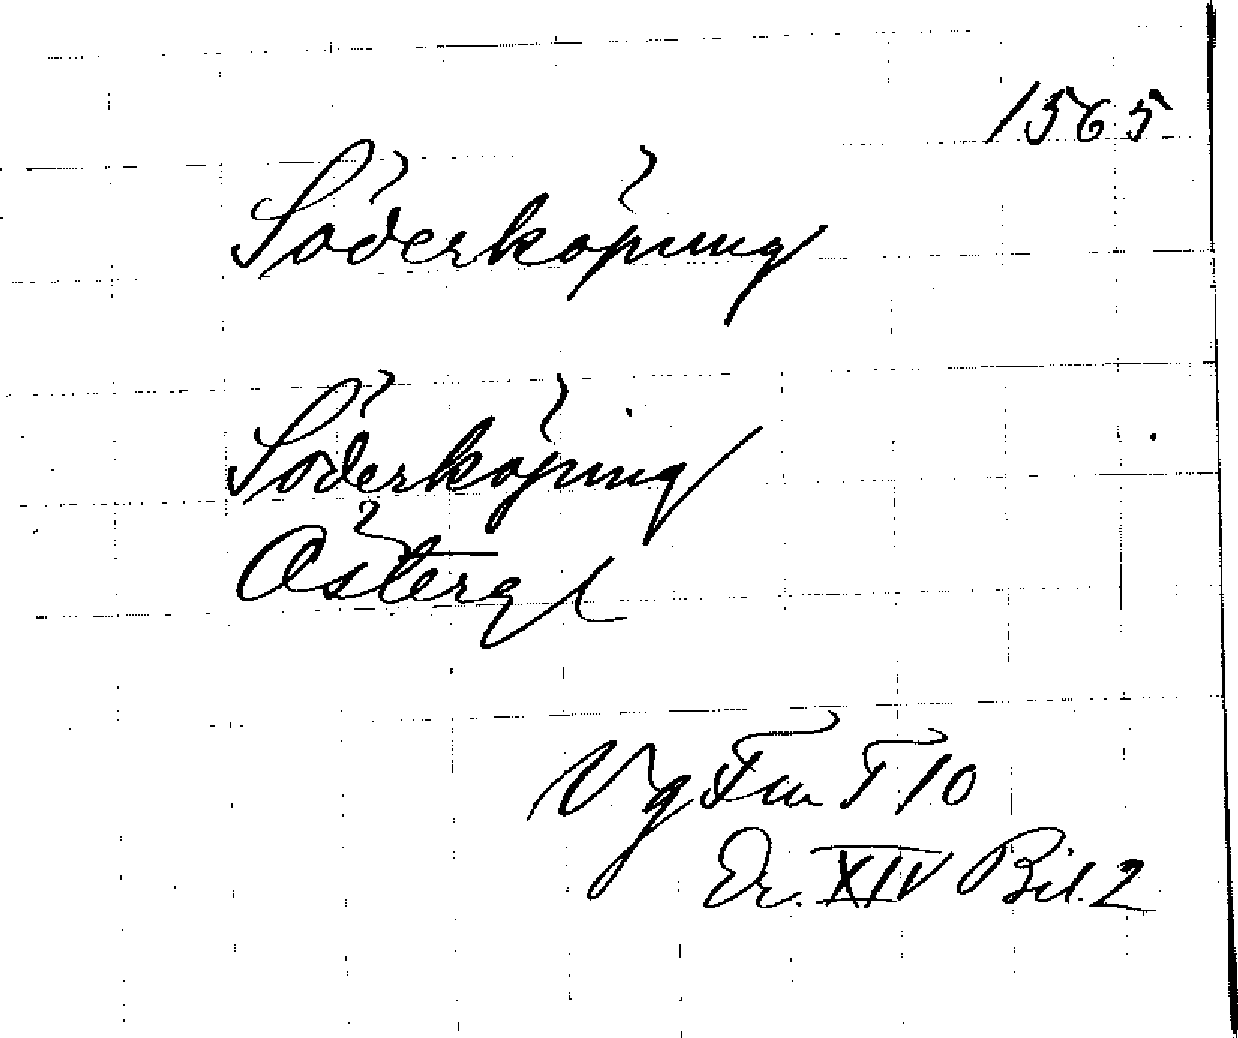 1565
Söderköping
Söderköping
Östergl
Vg Fm T 10
Dr. XIV Bil. 2